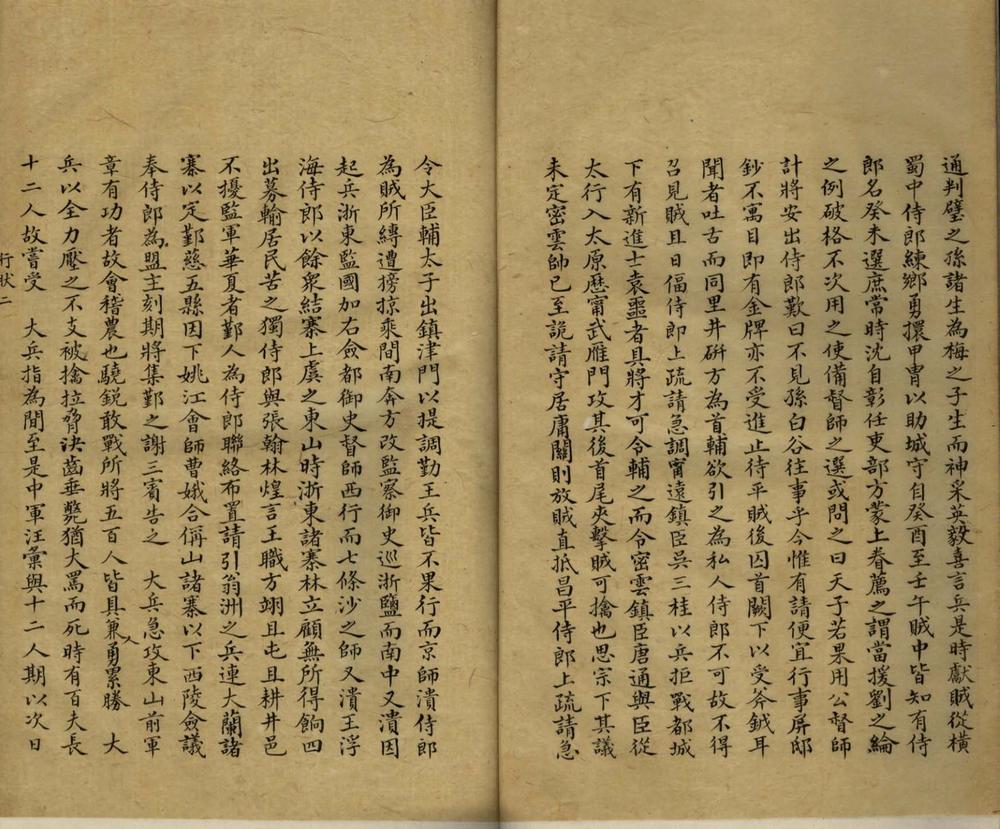 通判璧之孫諸生為梅之子生而神采英毅喜言兵是時獻賊從橫
蜀中侍郎練鄉勇擐甲冑以助城守自癸酉至壬午賊中皆知有侍
郎名癸未選庶常時沈自彰任吏部方蒙上眷薦之謂當援劉之綸
之例破格不次用之使備督師之選或問之曰天子若果用公督師
計將安出侍郎歎曰不見孫白谷往事乎今惟有請便宜行事屏邸
鈔不寓目即有金牌亦不受進止待平賊後囚首闕下以受斧鉞耳
聞者吐舌而同里井研方為首輔欲引之為私人侍郎不可故不得
召見賊且日偪侍郎上疏請急調甯遠鎮臣吳三桂以兵拒戰都城
下有新進士袁噩者具將才可令輔之而令密雲鎮臣唐通與臣從
太行入太原歷甯武雁門攻其後首尾夾擊賊可擒也思宗下其議
未定密雲帥已至詭請守居庸關則放賊直抵昌平侍郎上疏請急
令大臣輔太子出鎮津門以提調勤王兵皆不果行而京師潰侍郎
為賊所縛遭搒掠乘間南奔方改監察御史巡浙鹽而南中又潰因
起兵浙東監國加右僉都御史督師西行而七條沙之師又潰王浮
海侍郎以餘衆結寨上虞之東山時浙東諸寨林立顧無所得餉四
出募輸居民苦之獨侍郎與張翰林煌言王職方翊且屯且耕井邑
不擾監軍華夏者鄞人為侍郎聯絡布置請引翁洲之兵連大蘭諸
寨以定鄞慈五縣因下姚江會師曹娥合偁山諸寨以下西陵僉議
奉侍郎為盟主刻期將集鄞之謝三賓告之　大兵急攻東山前軍
章有功者故會稽農也驍銳敢戰所將五百人皆具兼人勇累勝　大
兵以全力壓之不支被擒拉脅決齒垂斃猶大罵而死時有百夫長
十二人故嘗受　大兵指為間至是中軍汪彙與十二人期以次日
行狀二